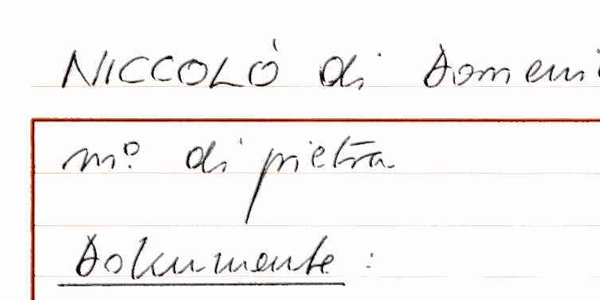 NICCOLÒ di Domeni
mº di pietra
Dokumente :